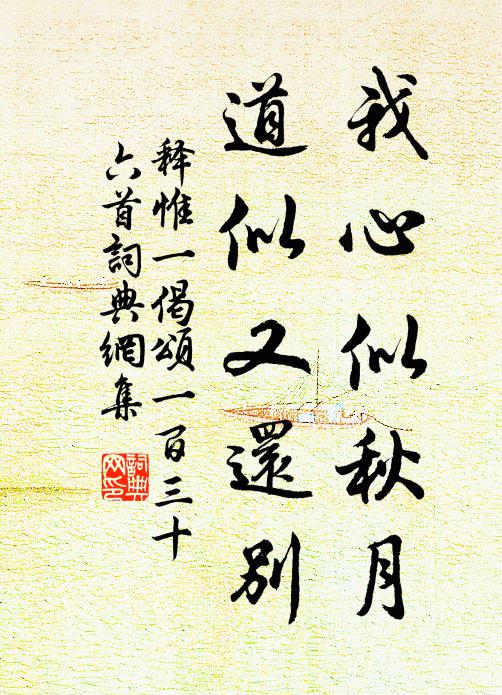 我心似秋月
道似又還別
释惟一偈頌一百三十
六首詞典網集
詞典
网印